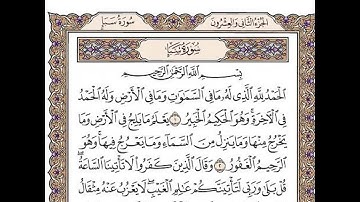 الجزء الثاني والعشرون
سورة سبإ
سورة سبإ
بِسْمِ اللَّهِ الرَّحْمَٰنِ الرَّحِيمِ
الْحَمْدُ لِلَّهِ الَّذِي لَهُ مَا فِي السَّمَاوَاتِ وَمَا فِي الْأَرْضِ وَلَهُ الْحَمْدُ
فِي الْآخِرَةِ وَهُوَ الْحَكِيمُ الْخَبِيرُ ١ يَعْلَمُ مَا يَلِجُ فِي الْأَرْضِ وَمَا
يَخْرُجُ مِنْهَا وَمَا يَنزِلُ مِنَ السَّمَاءِ وَمَا يَعْرُجُ فِيهَا وَهُوَ
الرَّحِيمُ الْغَفُورُ ٢ وَقَالَ الَّذِينَ كَفَرُوا لَا تَأْتِينَا السَّاعَةُ
قُلْ بَلَىٰ وَرَبِّي لَتَأْتِيَنَّكُمْ عَالِمِ الْغَيْبِ لَا يَعْزُبُ عَنْهُ مِثْقَالُ